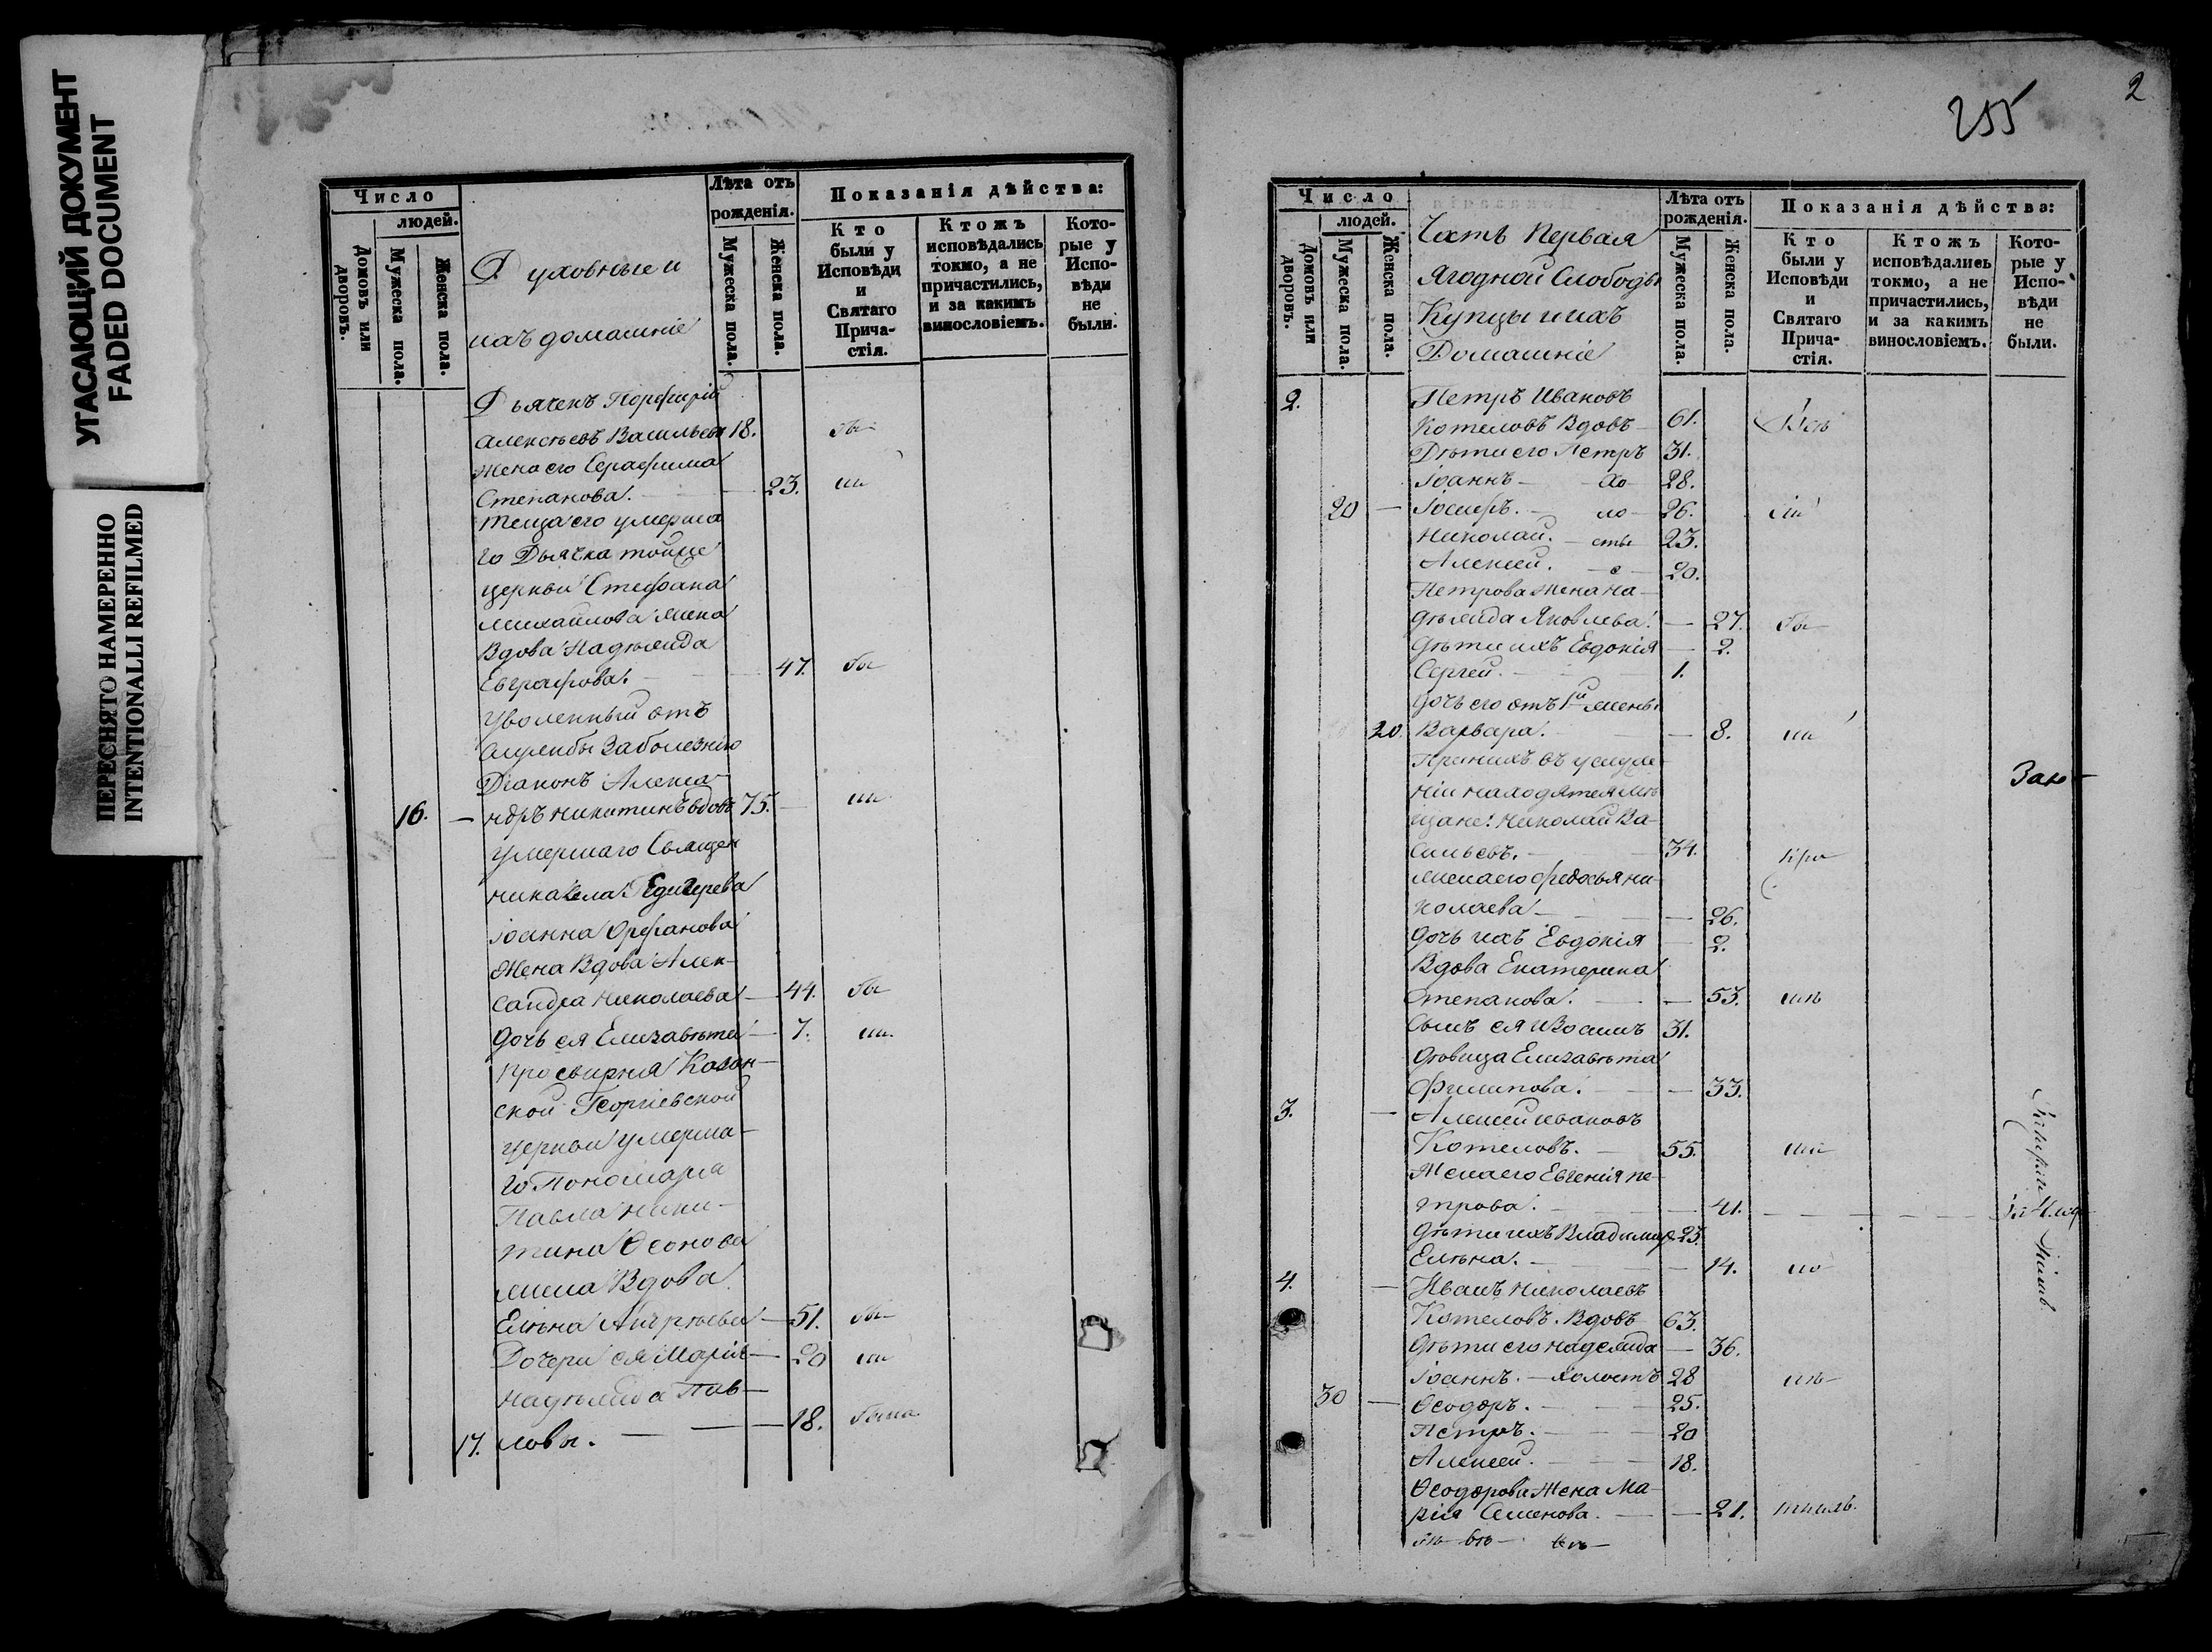 УГАСАЮЩИЙ ДОКУМЕНТ
FADED DOCUMENT
ПЕРЕСНЯТО НАМЕРЕННО
INTENTIONALLI REFILMED
Число
людей.
Домовъ или дворовъ.
Мужеска пола.
Женска пола.
Духовные и
ихъ домашніе
Лѣта отъ рожденія.
Мужеска пола.
Женска пола.
Показанія дѣйства:
Кто были у Исповѣди и Святаго Прича-стія.
Ктожъ исповѣдались токмо, а не причастились, и за какимъ винословіемъ.
Кото-рые у Испо-вѣди не были.
Дьячекъ Порфирій
Алексѣевъ Васильевъ 18. бы
Жена его Серафима
Степанова. 23. ли
теща его умерша
го Дьячка тойже
церкви Стефана
Михайлова жена
Вдова Надѣжда
Евграфова. 47. бы
Уволенный отъ
службы заболезнію
Діаконъ Алекса
16. — ндръ Никитинъ вдовъ 75. — ли
умершаго Священ
ника села
Іоанна Орфанова
Жена Вдова Алек-
сандра Николаева — 44. бы
Дочь ея Елизавѣта — 7. ли.
просвирня Казан-
ской Георгіевской
церкви умерша-
го Пономаря
Павла Ники-
тина Ѳеонова
жена Вдова
Елѣна Андрѣева — 51. бы
Дочери ея Марія — 20 ли
Надѣжда Пав-
17. ловы. — 18. была.
255
2
Число
людей.
Домовъ или дворовъ.
Мужеска пола
Женска пола.
Часть Первая
Ягодной Слободы
Купцы и ихъ
Домашніе
Лѣта отъ рожденія.
Мужеска пола.
Женска пола.
Показанія дѣйства:
Кто были у Исповѣди и Святаго Прича-стія.
Ктожъ исповѣдались токмо, а не причастились, и за какимъ винословіемъ.
Кото-рые у Испо-вѣди не были.
2. Петръ Ивановъ
Котеловъ Вдовъ 61. Всѣ
Дѣти его Петръ 31.
Іоаннъ — Хо — 28.
20 — Іосифъ. — ло — 26.
Николай. — сты 23.
Алексей. — е — 20.
Петрова жена На-
дѣжда Яковлева. — 27. бы
Дѣти ихъ Евдокія — 2.
Сергей. — 1.
Дочь его отъ 1й жены
20. Варвара. — 8. ли
При нихъ въ услуже
ніи находятся мѣ
щане: Николай Ва-
Зак
сильевъ. — 34. При
жена его Федосья Ни-
колаева — 26.
Дочь ихъ Евдокія — 2.
Вдова Екатерина
Степанова. — 53.
Сынъ ея 31.
Дѣвица Елизавѣта
Филипова. — 33.
3. — Алексей Ивановъ
Котеловъ. — 55.
Жена его Евгенія Пе-
трова. — 41.
Дѣти ихъ Владимиръ 23.
Елѣна. — 14. но
4. — Иванъ Николаевъ
Котеловъ. Вдовъ 63.
Дѣти его Надежда — 36.
Іоаннъ. — холостъ 28
30 — Ѳеодоръ. — 25.
Петръ. — 20
Алексей. — 18.
Ѳеодорова Жена Ма-
рія Семенова. — 21.